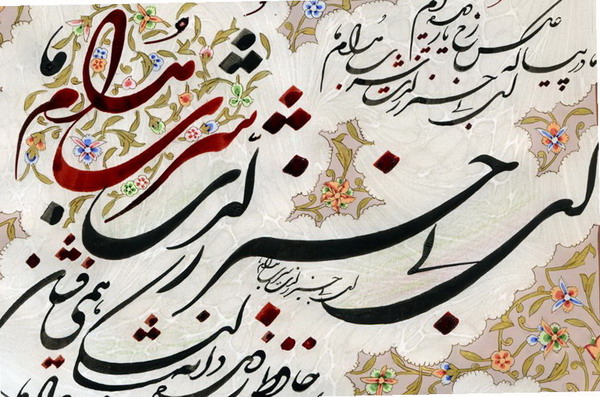 ما در پیاله عکس رخ یار دیده ایم
ای بی خبر ز لذت شرب مدام ما
ای بی خبر ز لذت شرب مدام ما
ای بی خبر ز لذت شرب مدام ما
حافظ ز دیده دانه اشکی همی فشان